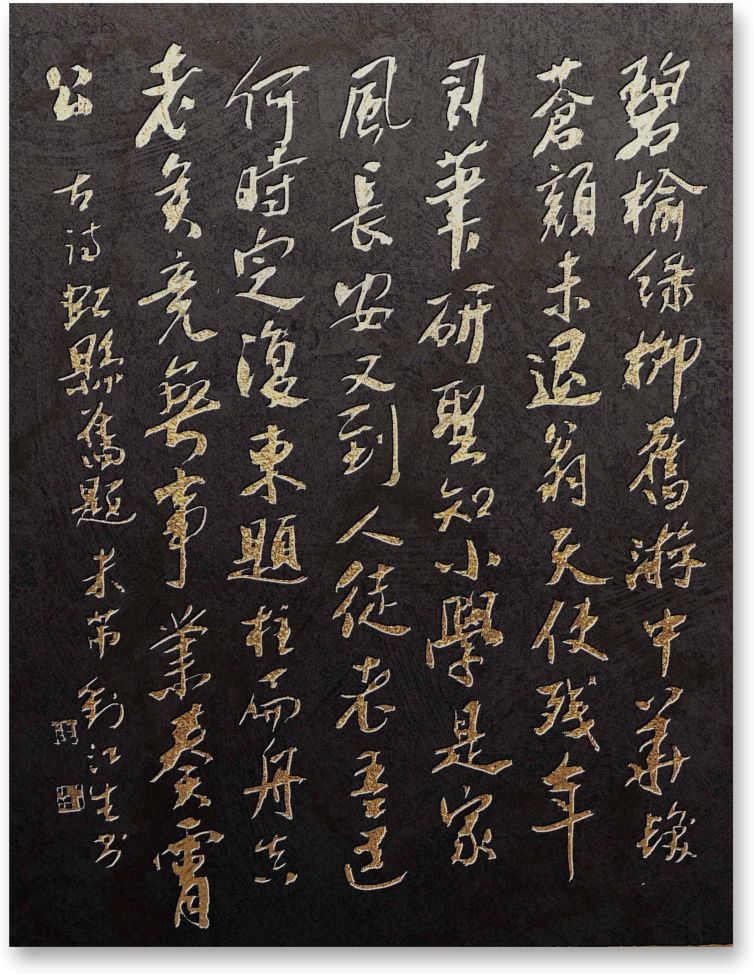 碧榆綠柳舊游中華髮
蒼顏未退翁天使残年
司筆研聖知小學是家
風長安又到人徒老吾道
何時定復東題柱扁舟真
老矣竟無事業奏膚
公 古詩虹縣舊題 米芾 劉江生书